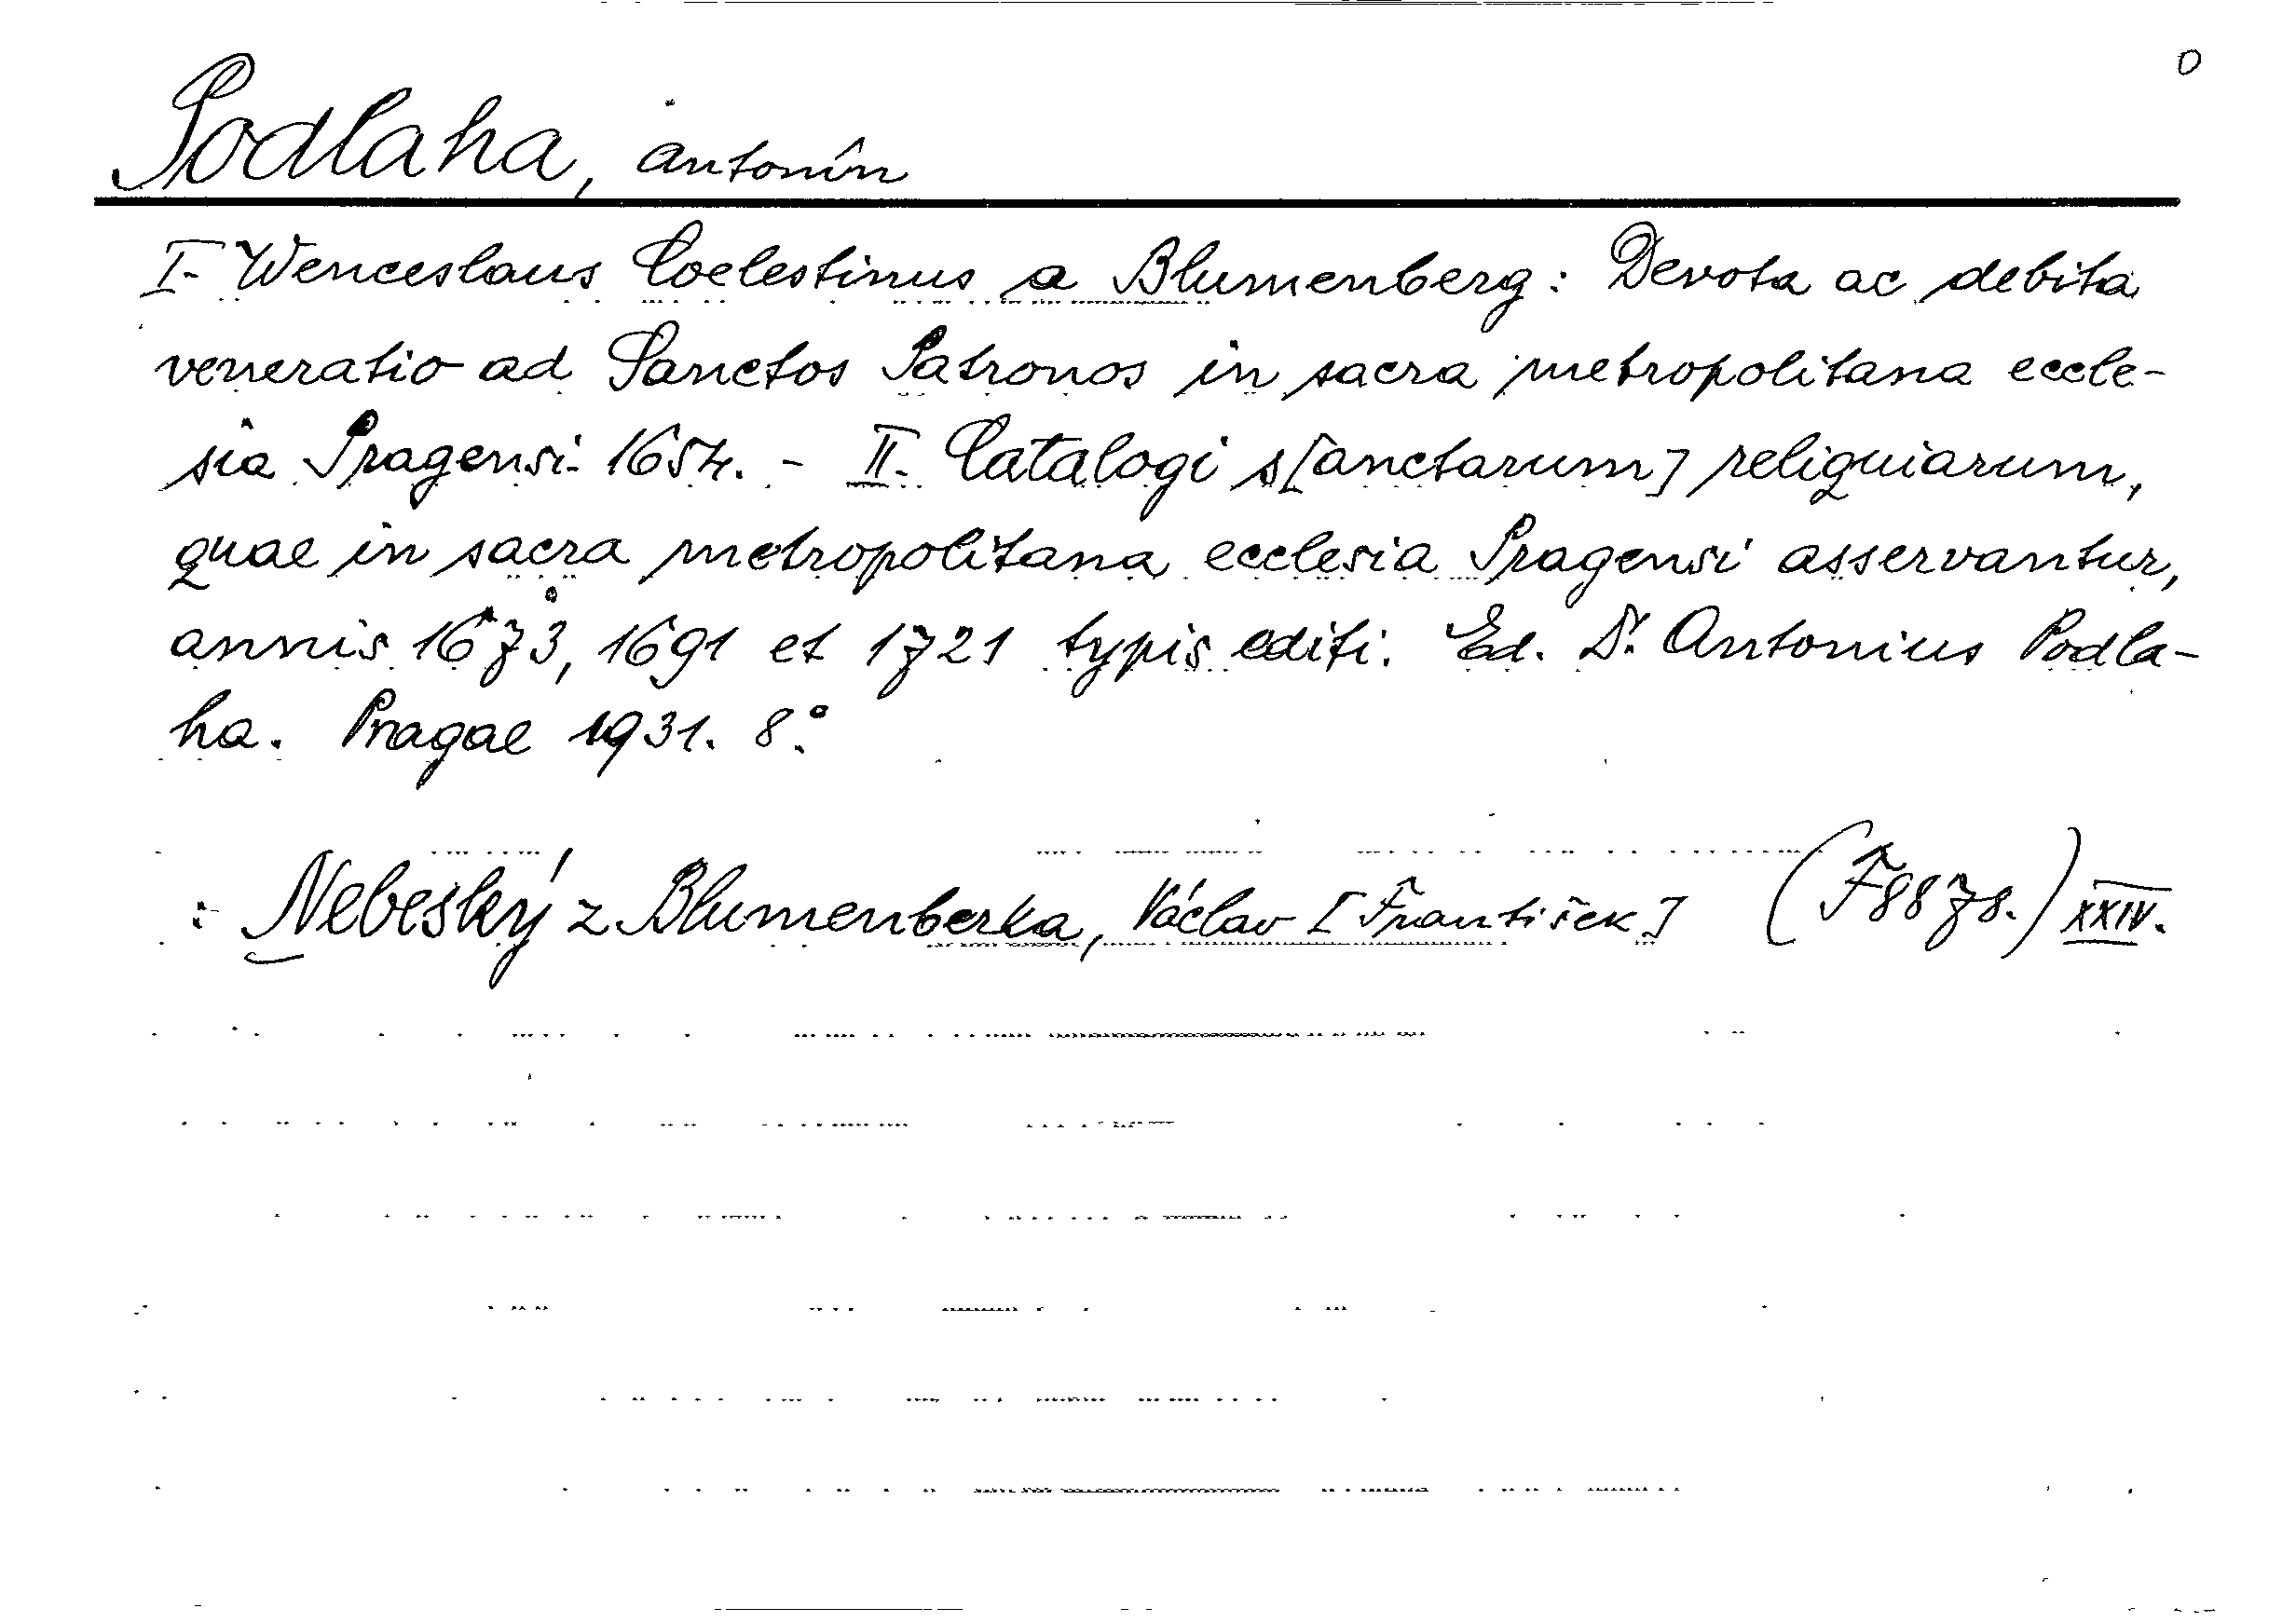 0
Podlaha, Antonín
I. Wenceslaus Coelestinus a Blumenberg: Devota ac debita
veneratio ad Sanctos Patronos in sacra metropolitana eccle-
sia Pragensi 1654. - II. Catalogi s[anctarum] reliquiarum,
quae in sacra metropolitana ecclesia Pragensi asservantur,
annis 1673, 1691 et 1721 typis editi. Ed. Dr. Antonius Podla-
ha. Pragae 1931. 8°.
:- Nebeský z Blumenberka, Václav [František] (F8878.) XXIV.